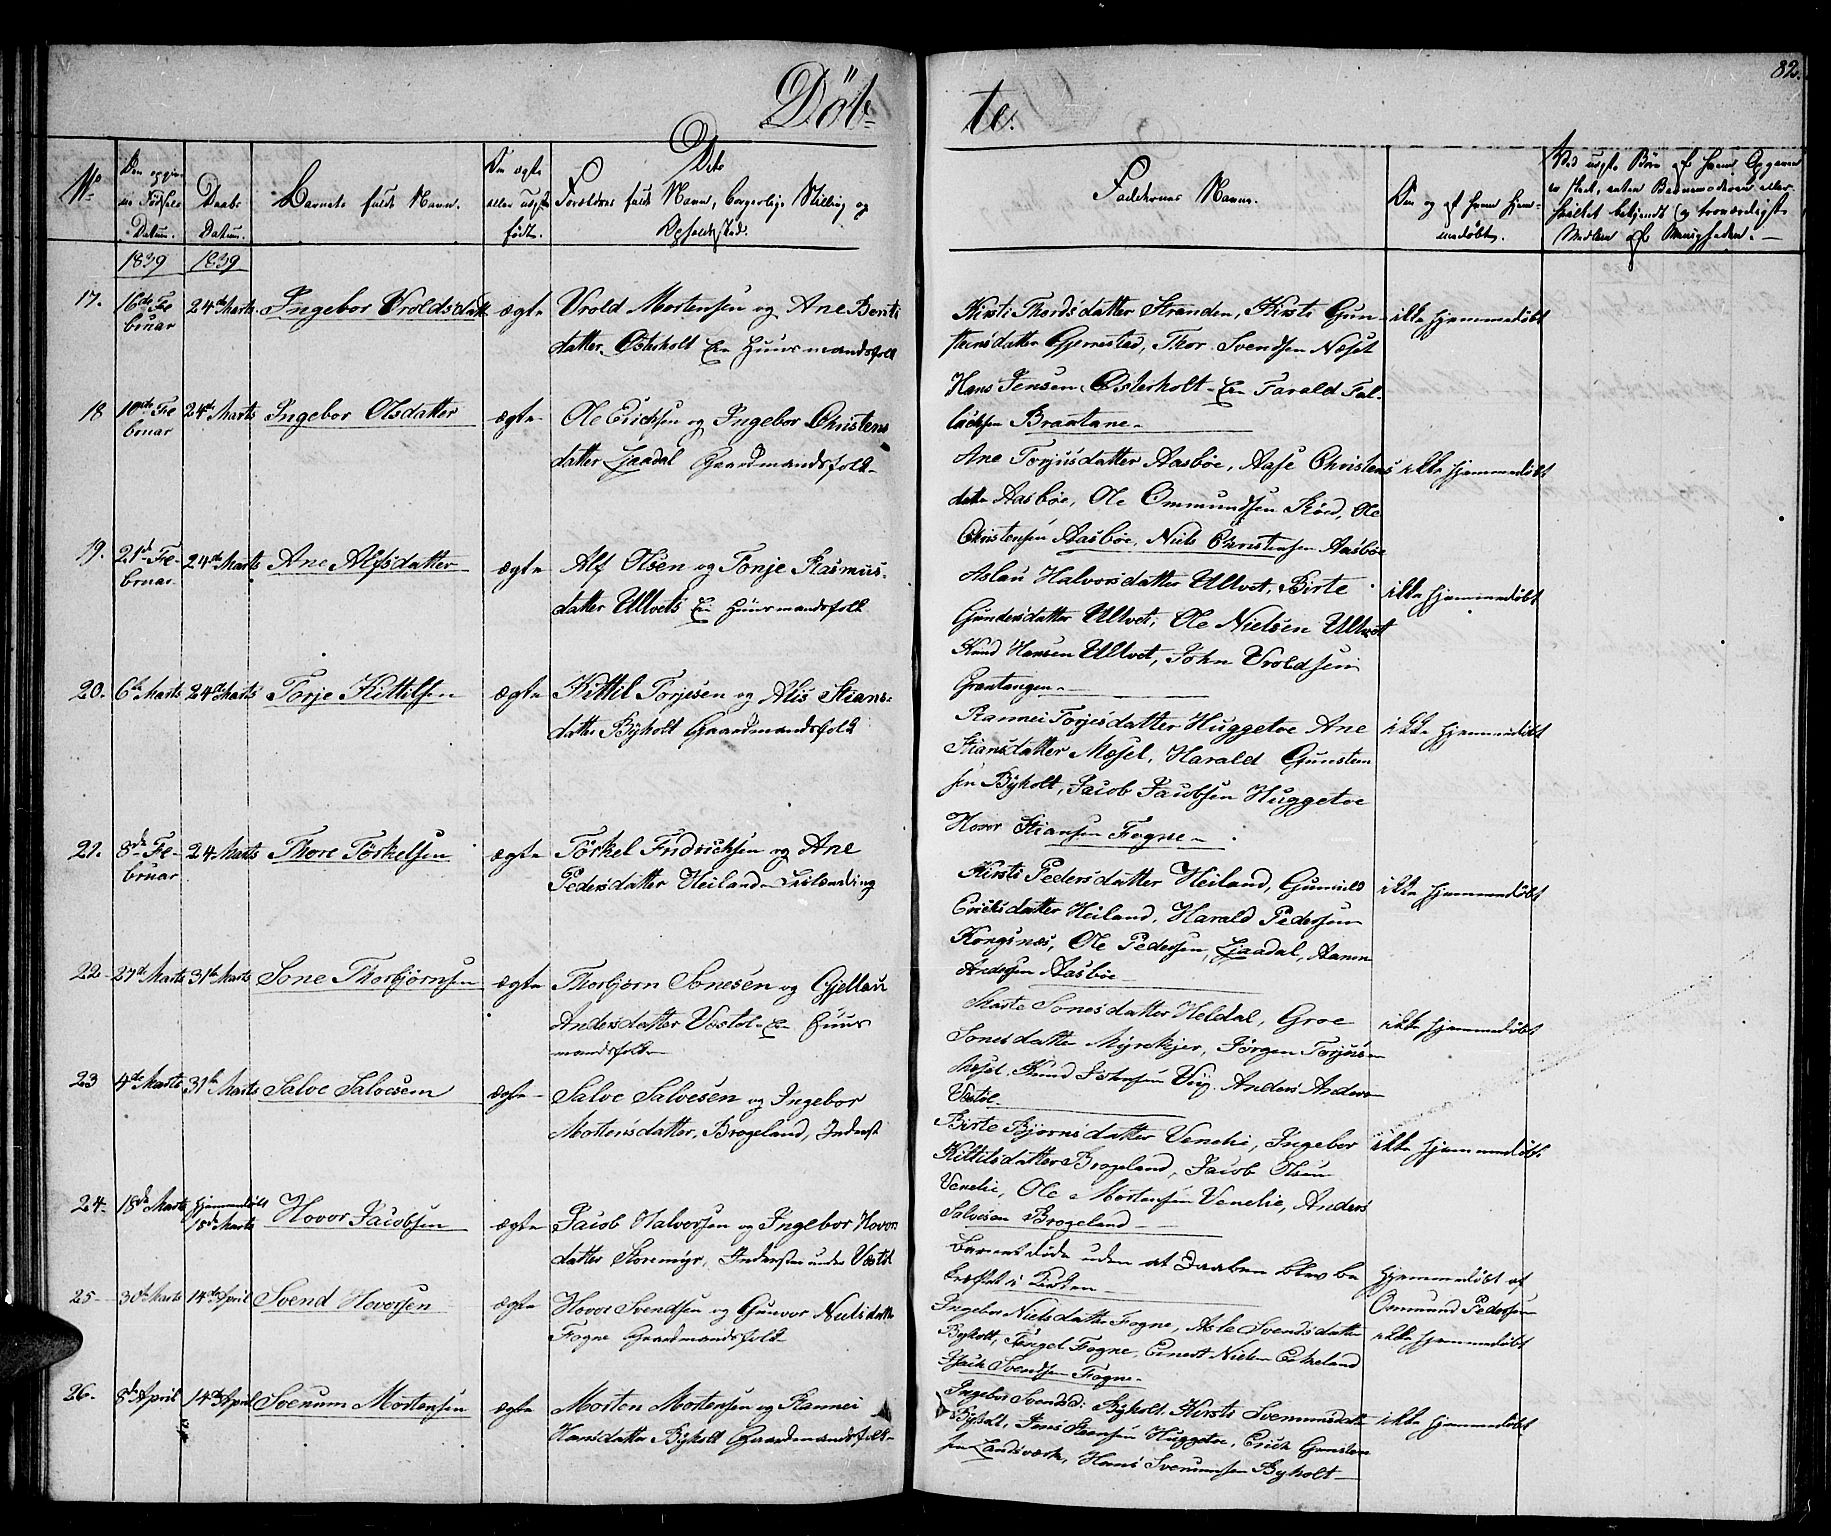 82.
Døb-
te.
No
Den opgiv-
ne Fødsels
Datum.
Daabs
Datum.
Barnets fulde Navn.
Om ægte
eller uægte
født.
Dets
Forældres fulde Navn, borgerlige Stilling og
Opholdssted.
Faddernes Navne.
Om og af hvem hjem-
medøbt.
Ved uægte Børn af hvem Opgaven
er skeet, enten Barnemoderen eller
hvilket bekjendt og troværdigt
Medlem af Menigheden.
1839
1839
17.
16de Fe
bruar
24de Marts
Ingebor Vroldsdatt
ægte
Vrold Mortensen og Ane Bents
datter Østerholt Ei Huusmandsfolk
Kirsti Thordsdatter Stranden, Kirsti Gun-
steinsdatter Gjernestad, Thor Svendsen Næset
Hans Jensen Østerholt Ei Tarald Tal-
laksen Braatane
ikke hjemmedøbt
18
10de Fe
bruar
24de Marts
Ingebor Olsdatter
ægte
Ole Ericksen og Ingebor Christens
datter Ljaadal Gaardmandsfolk
Ane Torjusdatter Aasbøe, Aase Christens
datter Aasbøe, Ole Ommundsen Røed, Ole
Christensen Aasbøe, Niels Christensen Aasbøe
ikke hjemmedøbt
19.
21de Fe-
bruar
24de Marts
Ane Alfsdatter
ægte
Alf Olsen og Tonje Rasmus-
datter Ullvets Ei Huusmandsfolk
Aslau Halvorsdatter Ullvet, Birte
Gundersdatter Ullvet, Ole Nielsen Ullvet
Knud Hansen Ullvet, John Vroldsen
Grantangen
ikke hjemmedøbt
20.
6te Marts
24de Marts
Torje Kittilsen
ægte
Kittil Torjesen og Alis Stians-
datter Byholt Gaardmandsfolk
Rannei Torjesdatter Huggetoe Ane
Stiansdatter Mosel, Harald Gunstein
sen Byholt, Jacob Jacobsen Huggetoe
Hovor Stiansen Fogne
ikke hjemmedøbt
21.
8de Fe-
bruar
24 Marts
Thore Torkelsen
ægte
Torkel Fridricksen og Ane
Pedersdatter Heiland
Kirsti Pedersdatter Heiland, Gunuld
Ericksdatter Heiland, Harald Pedersen
Kongsnæs, Ole Pedersen, Ljaadal, Aanon
Andersen Aasbøe
ikke hjemmedøbt
22
27de Marts
31te Marts
Sone Thorbjørnsen
ægte
Thorbjørn Sonesen og Gjellau
Andersdatter Vestøl Ei Huus
mandsfolk
Marte Sonesdatter Heldal, Groe
Sonesdatter Myrekjer, Jørgen Torjus-
Mosel, Knud Vig, Anders Anders
Vestøl
ikke hjemmedøbt
23
4de Marts
31te Marts
Salve Salvesen
ægte
Salve Salvesen og Ingebor
Mortensdatter, Brogeland, Inderst
Birte Bjornsdatter Venelie, Ingebor
Kittilsdatter Brogeland, Jacob Olsen
Venelie, Ole Mortensen Venelie, Anders
Salvesen Brogeland
ikke hjemmedøbt
24
18de Marts
hjemmedøbt
18de Marts
Hovor Jacobsen
ægte
Jacob Halvorsen og Ingebor Hovors
datter Storemyr, Inderster under Vestøl
Barnet døde uden at Daaben blev be
kræftet i Kirken
Hjemmedøbt af
Ommund Pedersen
25
30te Marts
14de April
Svend Hovorsen
ægte
Hovor Svendsen og Gunvor Nielsdatter
Fogne Gaardmandsfolk
Ingebor Nielsdatter Fogne, Asle Svendsdatter
Byholt, Tengel Fogne, Nielsen Eikeland
Isack Svendsen Fogne
ikke hjemmedøbt
26.
8de April
14de April
Svenum Mortensen
ægte
Morten Mortensen og Rannei
Hansdatter Byholt Gaardmandsfolk
Ingebor Svendsd: Byholt, Kirsti Svenumsdatter
Byholt, Jens Stiansen Huggetoe, Erick Gunstein
sen Landsverk, Hans Svenumsen Byholt
ikke hjemmedøbt